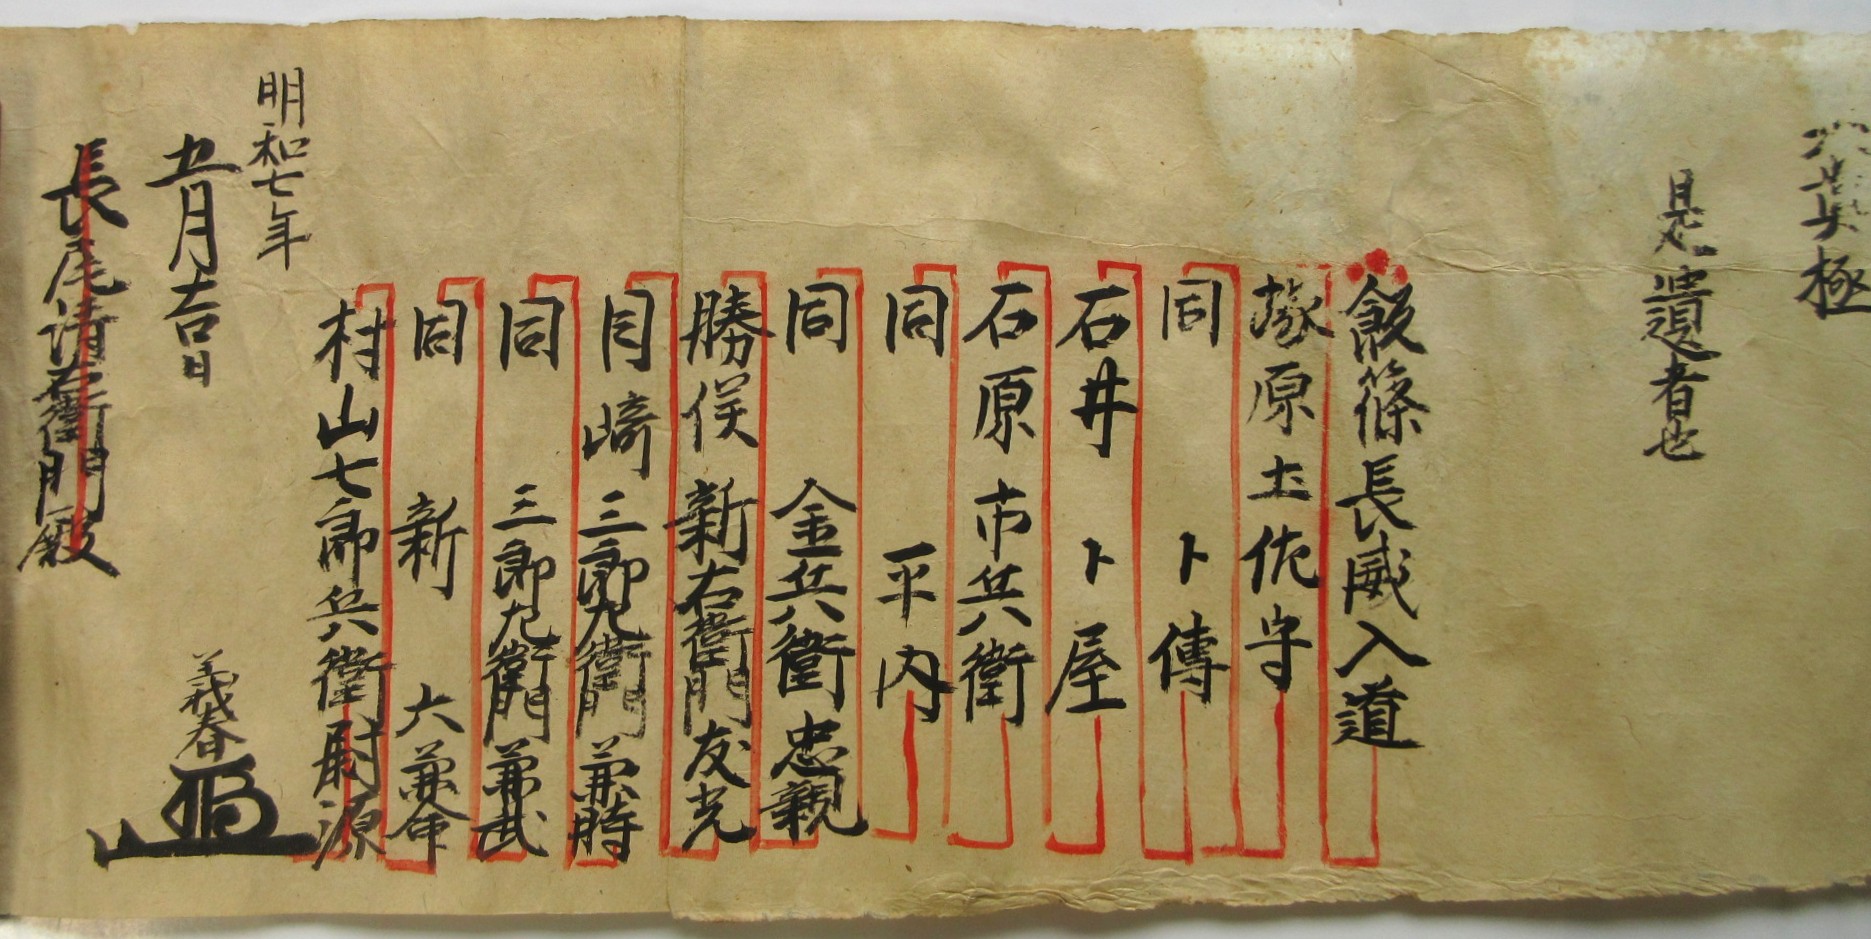 極
是遺者也
飯篠長威入道
塚原土佐守
同 卜傳
石井 卜屋
石原市兵衛
同 平内
同 金兵衛忠親
勝俣新右衛門友光
月崎三郎九衛門兼時
同 三郎九衛門兼武
同 新六兼命
村山七郎兵衛尉源
義春
明和七年
五月吉日
長尾清右衛門殿